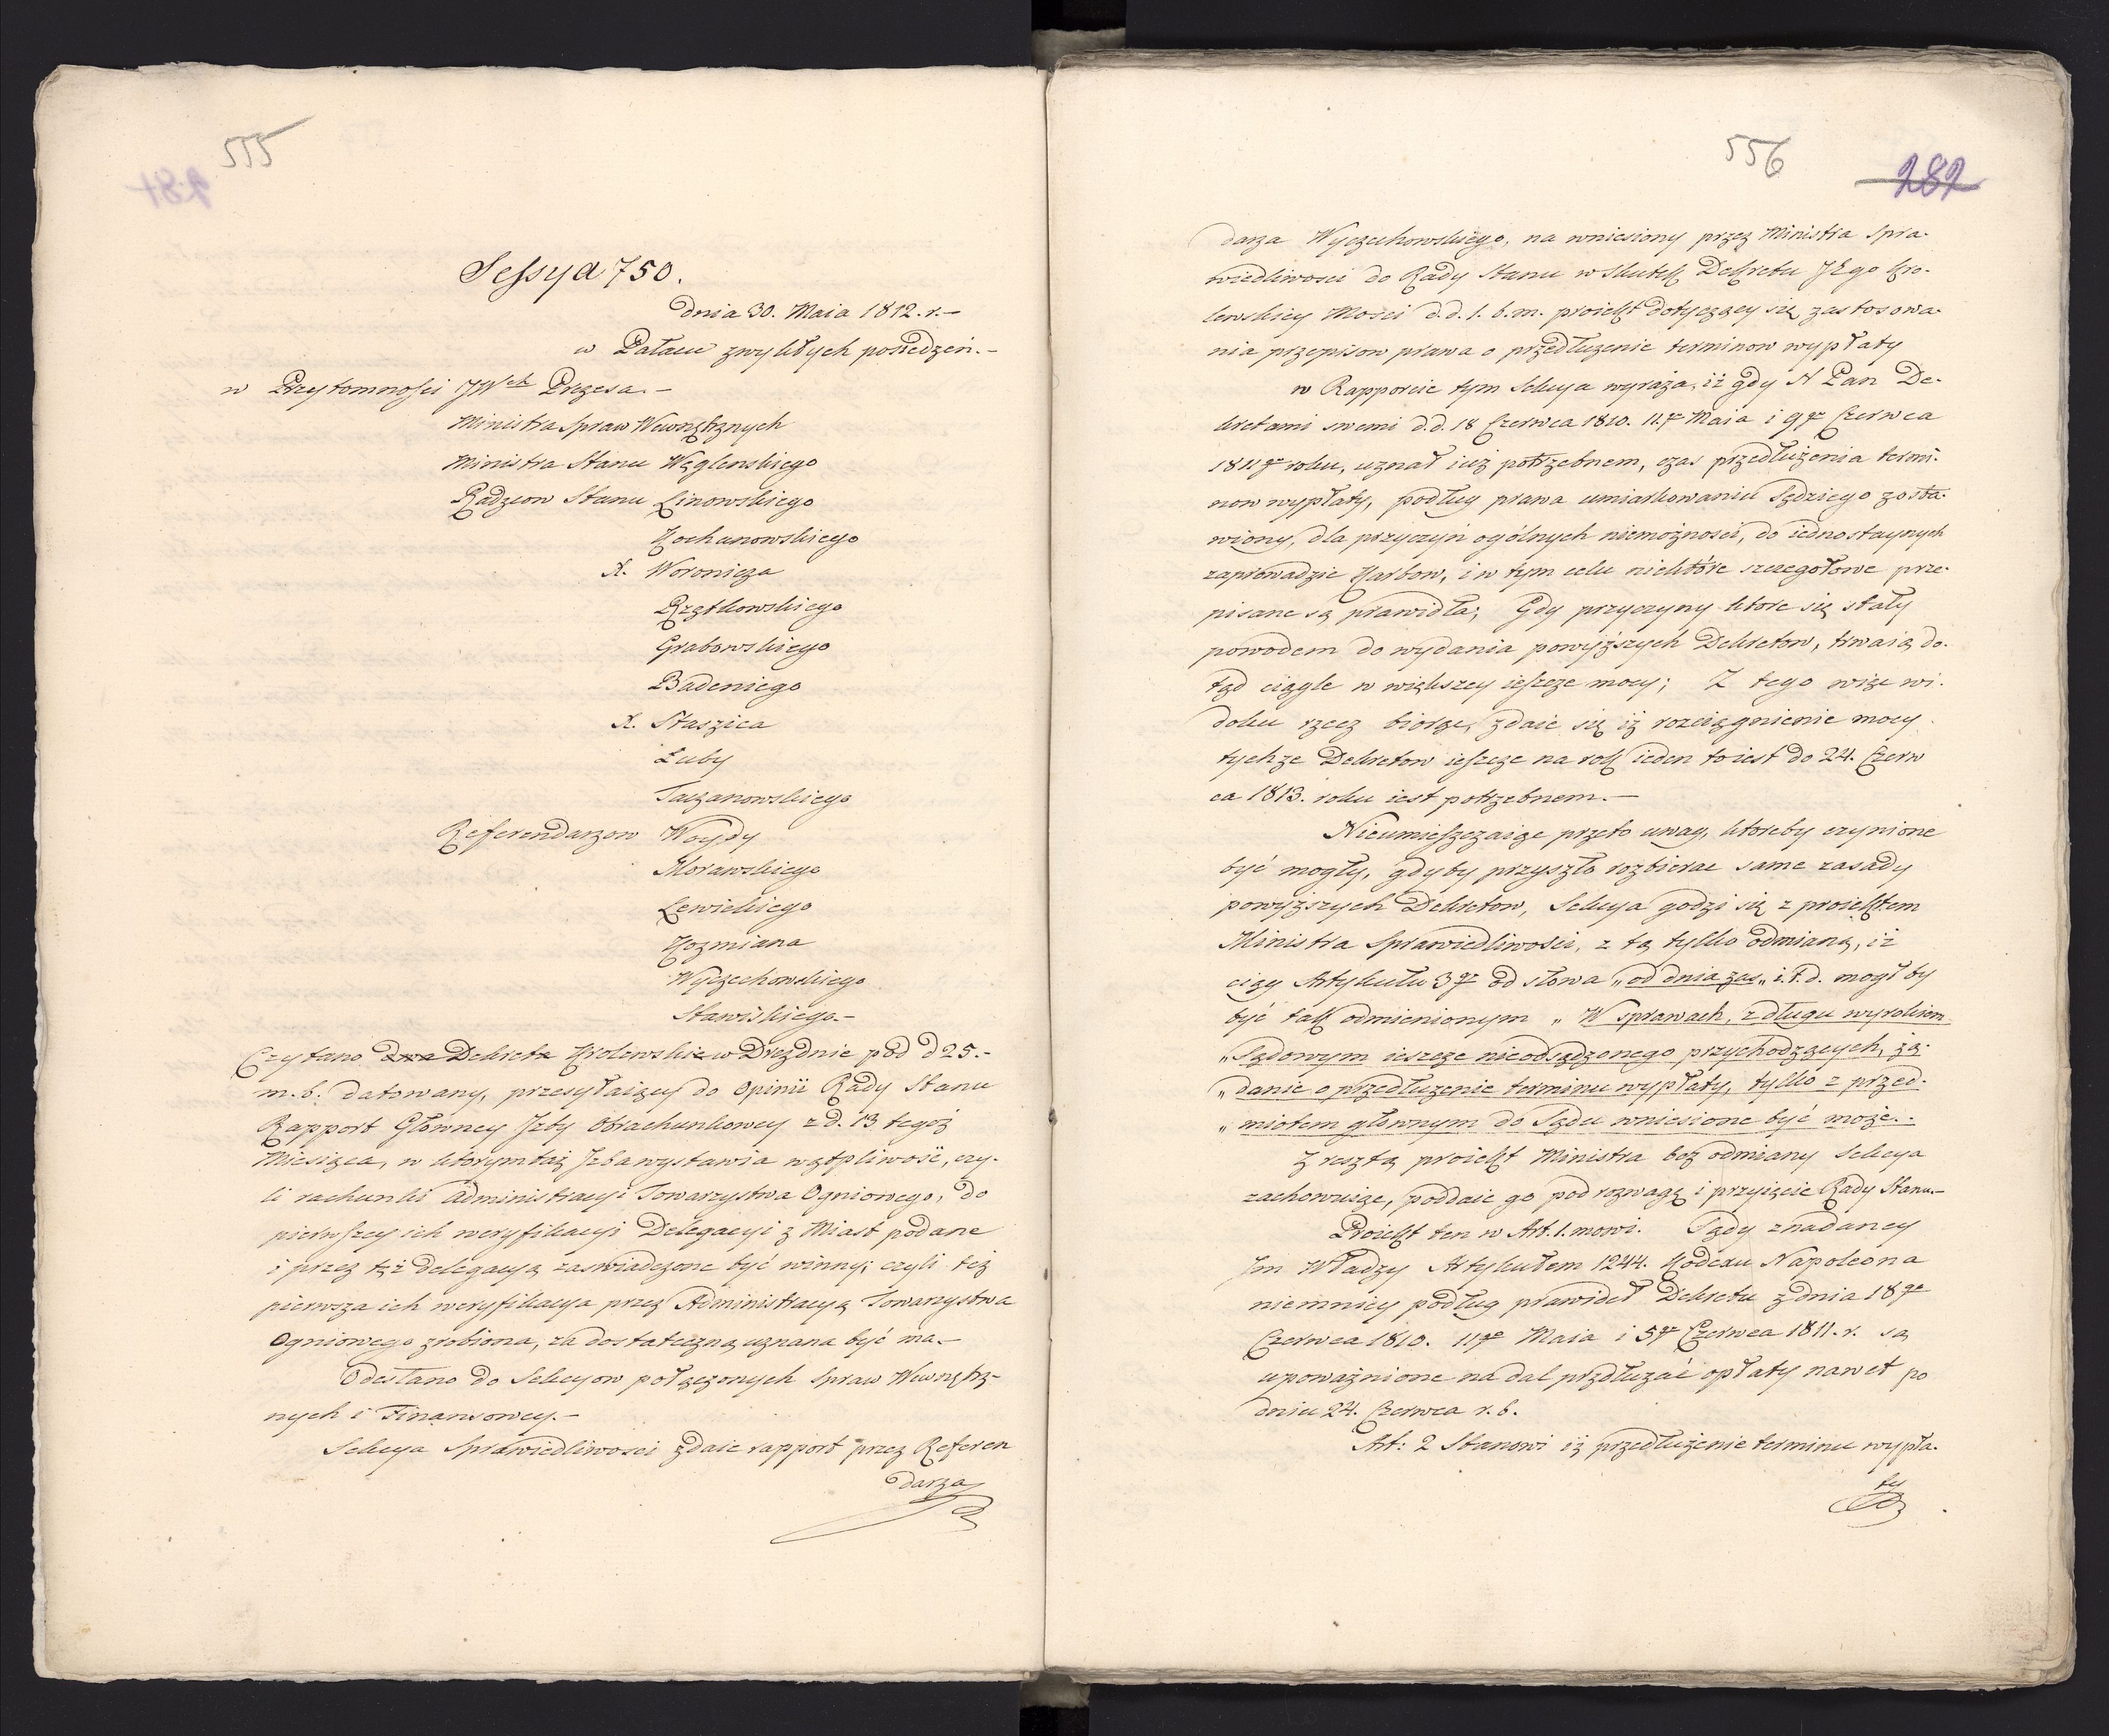 555
Sessya 750.
dnia 30. Maia 1812. r.-
w Pałacu zwykłych posiedzeń.-
w Przytomności JWch Prezesa.-
Ministra Spraw Wewnętrznych
Ministra Stanu Węglenskiego
Radzcow Stanu Linowskiego
Kochanowskiego
X. Woronicza
Rzątkowskiego
Grabowskiego
Badeniego
X. Staszica
Łuby
Taczanowskiego
Referendarzow Woydy
Morawskiego
Lewickiego
Kozmiana
Wyczechowskiego
Stawiskiego.-
Czytano dwa Dekreta Krolewskie w Dreznie pod d 25.-
m. b. datowany, przesyłaiący do Opinii Rady Stanu
Rapport Głowney Izby Obrachunkowey z d. 13 tegoż
Miesiąca, w ktorym taż Izba wystawia wątpliwość, czy-
li rachunki Administracyi Towarzystwa Ogniowego, do
pierwszey ich weryfikacyi Delegacyi z Miast podane
i przez też delegacyą zaswiadczone być winny; czyli też
pierwsza ich weryfikacya przez Administracyą Towarzystwa
Ogniowego zrobiona, za dostateczną uznana być ma.-
Odesłano do Sekcyow połączonych Spraw Wewnętrz-
nych i Finansowey.-
Sekcya Sprawiedliwosci zdaie rapport przez Referen
darza
556
282
darza Wyczechowskiego, na wniesiony przez Ministra Spra-
wiedliwosci do Rady Stanu w Skutek Dekretu JKgo Kro-
lewskiey Mości d.d. 1. b. m. proiekt dotyczący się zastosowa-
nia przepisow prawa o przedłużenie terminow wypłaty
w Rapporcie tym Sekcya wyraża, iż gdy N Pan De-
kretami swemi d.d. 18 Czerwca 1810. 11.go Maia i 9go Czerwca
1811go roku, uznał iuż potrzebnem, czas przedłużenia termi-
now wypłaty, podług prawa umiarkowaniu Sędziego zosta-
wiony, dla przyczyn ogólnych niemożnosci, do iednostaynych
zaprowadzic Karbow, i w tym celu niektóre szczegołowe prze-
pisane są prawidła; Gdy przyczyny ktore się stały
powodem do wydania powyższych Dekretow, trwaią do-
tąd ciągle w większey ieszcze mocy; Z tego więc wi-
doku rzecz biorąc, zdaie się iż rozciągnienie mocy
tychze Dekretow ieszcze na rok ieden to iest do 24. Czerw
ca 1813. roku iest potrzebnem.-
Nieumieszczaiąc przeto uwag, ktoreby czynione
być mogły, gdyby przyszło rozbierac same zasady
powyższych Dekretow, Sekcya godzi się z proiektem
Ministra Sprawiedliwosci, z tą tylko odmianą, iż
ciąg Artykułu 3go od słowa „od dnia zas„ i. t. d. mogł by
być tak odmienionym „W sprawach, z długu wyrokiem
„Sądowym ieszcze nieodsądzonego przychodzących, żą-
„danie o przedłużenie terminu wypłaty, tylko z przed-
„miotem głownym do Sądu wniesione być może.-
Z resztą proiekt Ministra bez odmiany Sekcya
zachowuiąc, poddaie go pod rozwagę i przyięcie Rady Stanu.-
Proiekt ten w Art. 1. mowi. Sądy z nadaney
Im Władzy Artykułem 1244. Kodexu Napoleona
niemniey podług prawideł Dekretu z dnia 18go
Czerwca 1810. 11go Maia i 5go Czerwca 1811. r. są
upoważnione na dal przdłużać opłaty nawet po
dniu 24. Czerwca r. b.
Art: 2 Stanowi iż przedłużenie terminu wypła-
ty